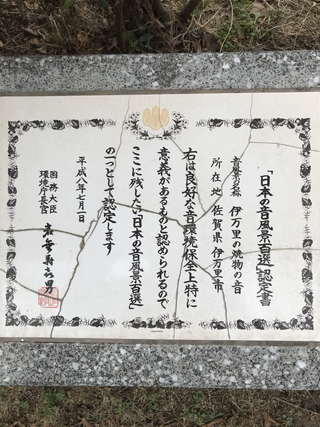 「日本の音風景百選」認定書
音風景の名称　伊万里の焼物の音
所在地　佐賀県　伊万里市
右は良好な音環境保全上特に
意義があるものと認められるので
ここに残したい日本の音風景百選」
の一つとして認定します
平成八年七月一日
国務大臣
環境庁長官
岩垂寿喜男